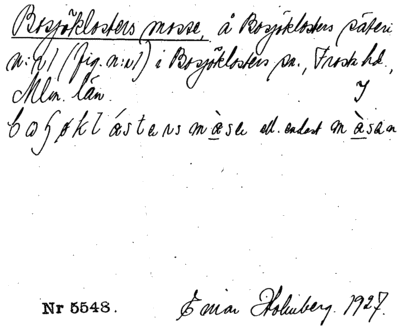 Bosjöklosters mosse, å Bosjöklosters säteri
n:r 1 (fig. n:r 1) i Bosjöklosters sn., Frosta hd.,
Mlm. län. J
boʃøklåstərs mȧsa ell. endast mȧsan
Nr 5548. Einar Holmberg. 1927.